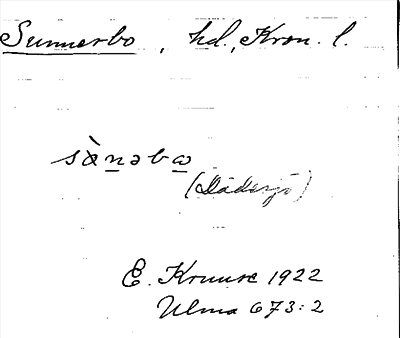 Sunnerbo, hd., Kron. l.
sæ̀n̲əbω̲
(Dädesjö)
E. Kruuse 1922
Ulma 673:2